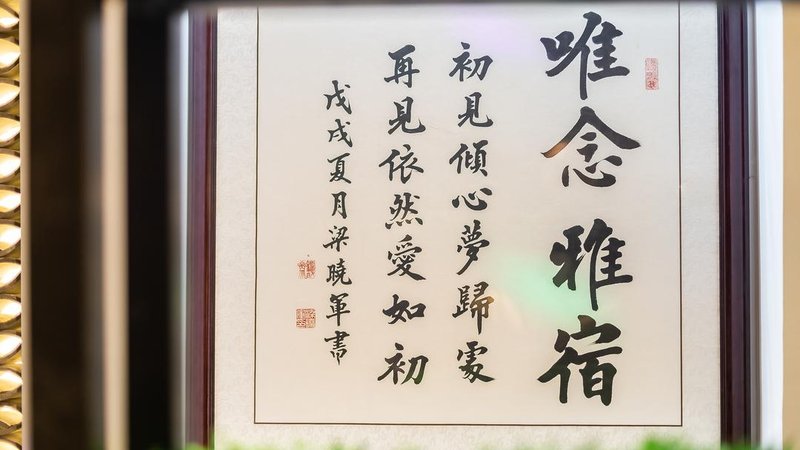 唯念雅宿
初見傾心夢歸處
再見依然愛如初
戊戌夏月梁曉軍書